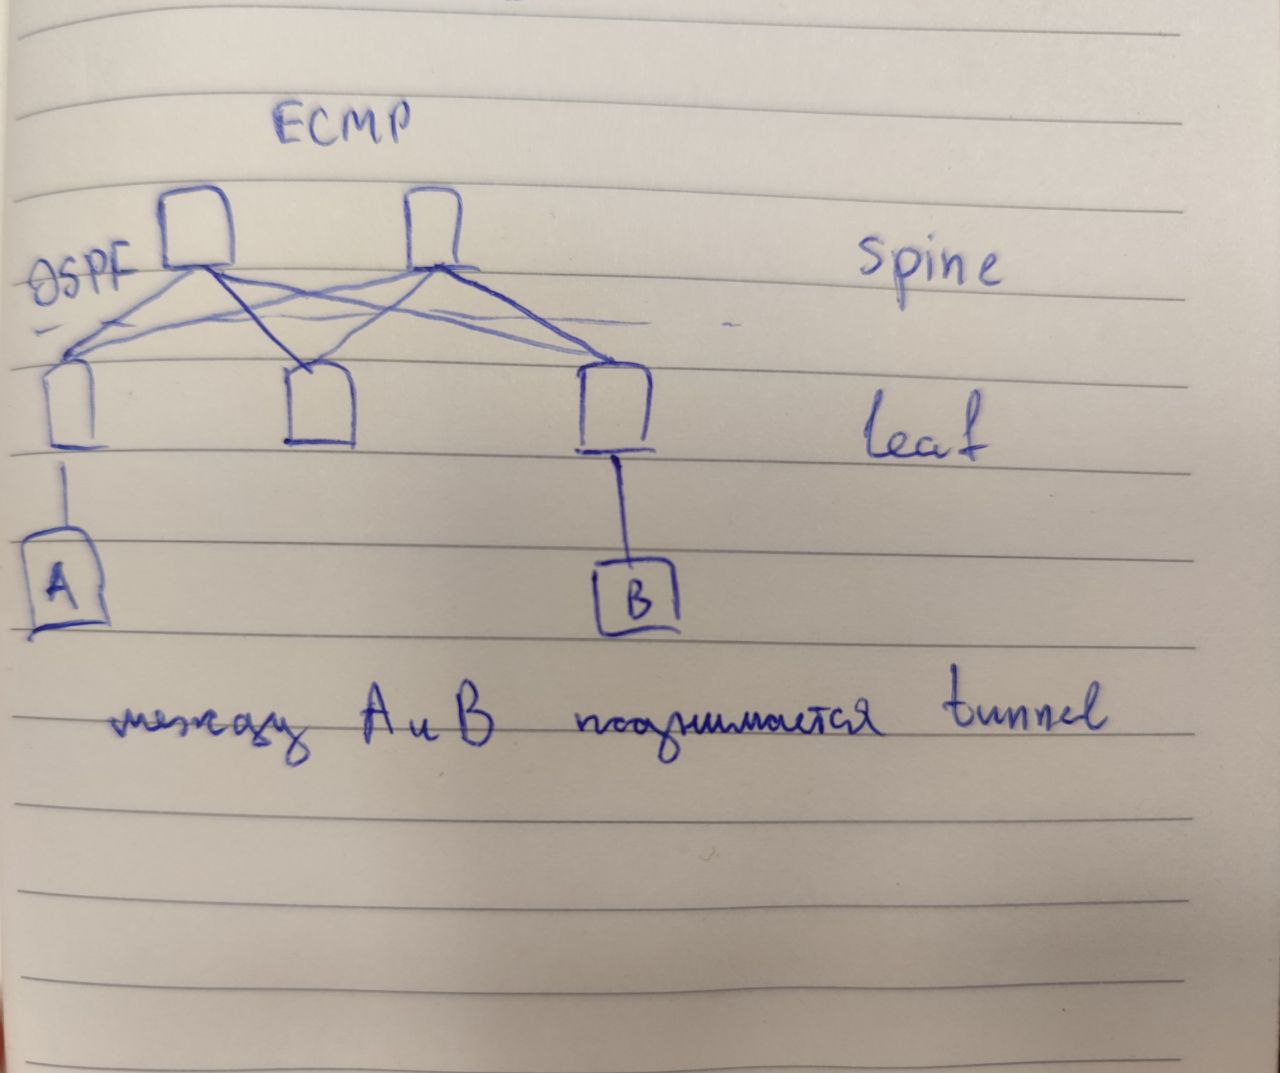 ECMP
OSPF
spine
leaf
A
B
между A и B поднимается tunnel